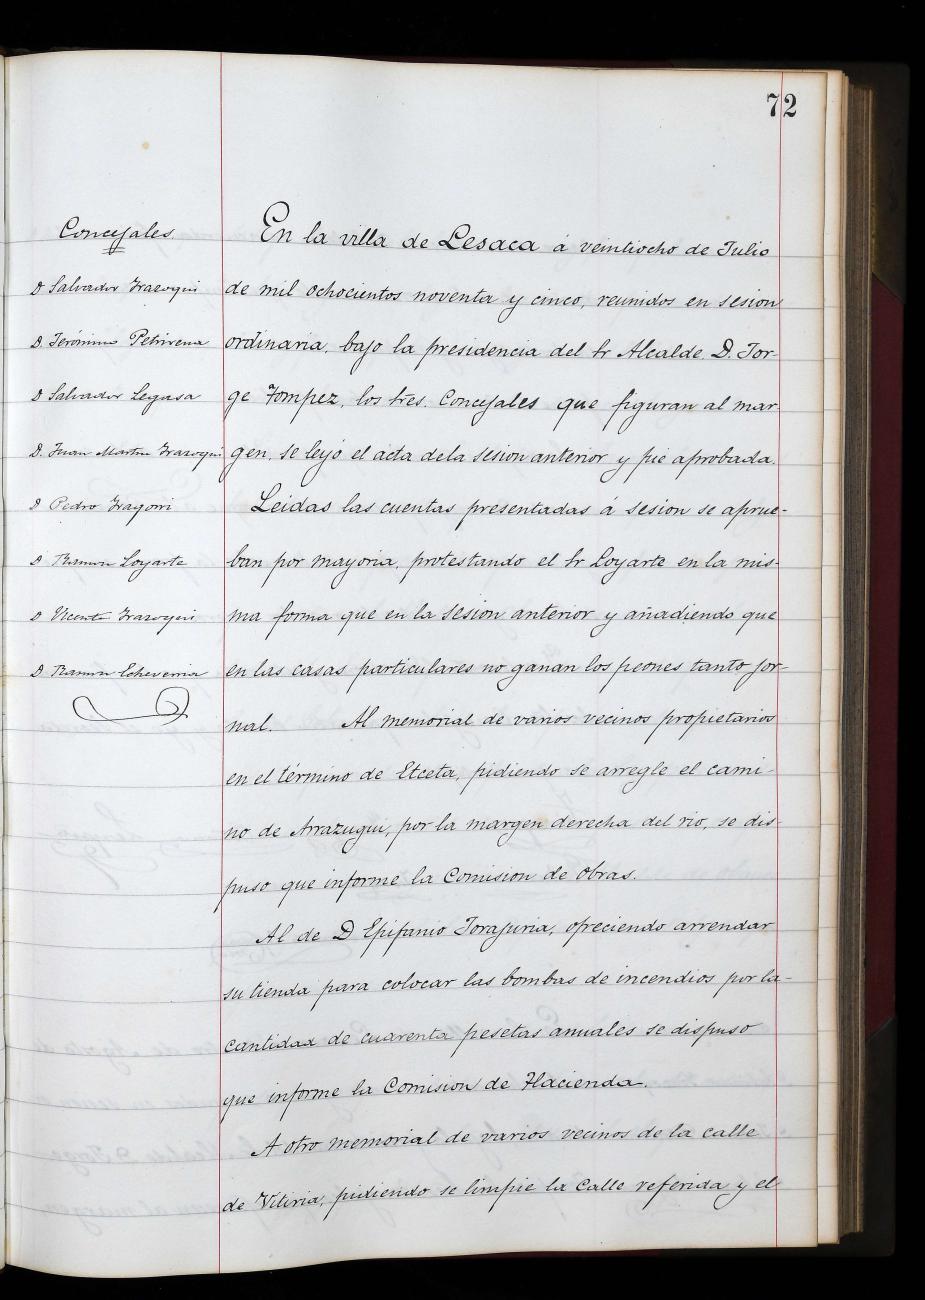 72
Concejales.
D Salvador Irazoqui
D Jerónimo Petrirena
D Salvador Legasa
D. Juan Martin Irazoqui
D Pedro Iragorri
D Ramon Loyarte
D Vicente Irazoqui
D Ramon Echeverria
En la villa de Lesaca á veintiocho de Julio
de mil ochocientos noventa y cinco, reunidos en sesion
ordinaria, bajo la presidencia del Sr Alcalde. D. Jor-
ge Tompez, los Sres. Concejales que figuran al mar-
gen, se leyó el acta dela sesion anterior y fué aprobada.
Leidas las cuentas presentadas á sesion se aprue-
ban por mayoria, protestando el Sr Loyarte en la mis-
ma forma que en la sesion anterior y añadiendo que
en las casas particulares no ganan los peones tanto jor-
nal. Al memorial de varios vecinos propietarios
en el término de Etceta, pidiendo se arregle el cami-
no de Arrazugui, por la margen derecha del rio, se dis-
puso que informe la Comision de Obras.
Al de D Epifanio ofreciendo arrendar
su tienda para colocar las bombas de incendios por la-
cantidad de cuarenta pesetas anuales se dispuso
que informe la Comision de Hacienda.
A otro memorial de varios vecinos de la calle
de Vitiria, pidiendo se limpie la Calle referida y el